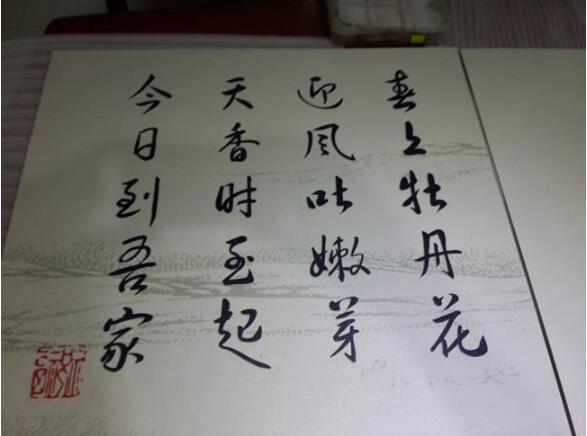 春上牡丹花
迎风吐嫩芽
天香时至起
今日到吾家